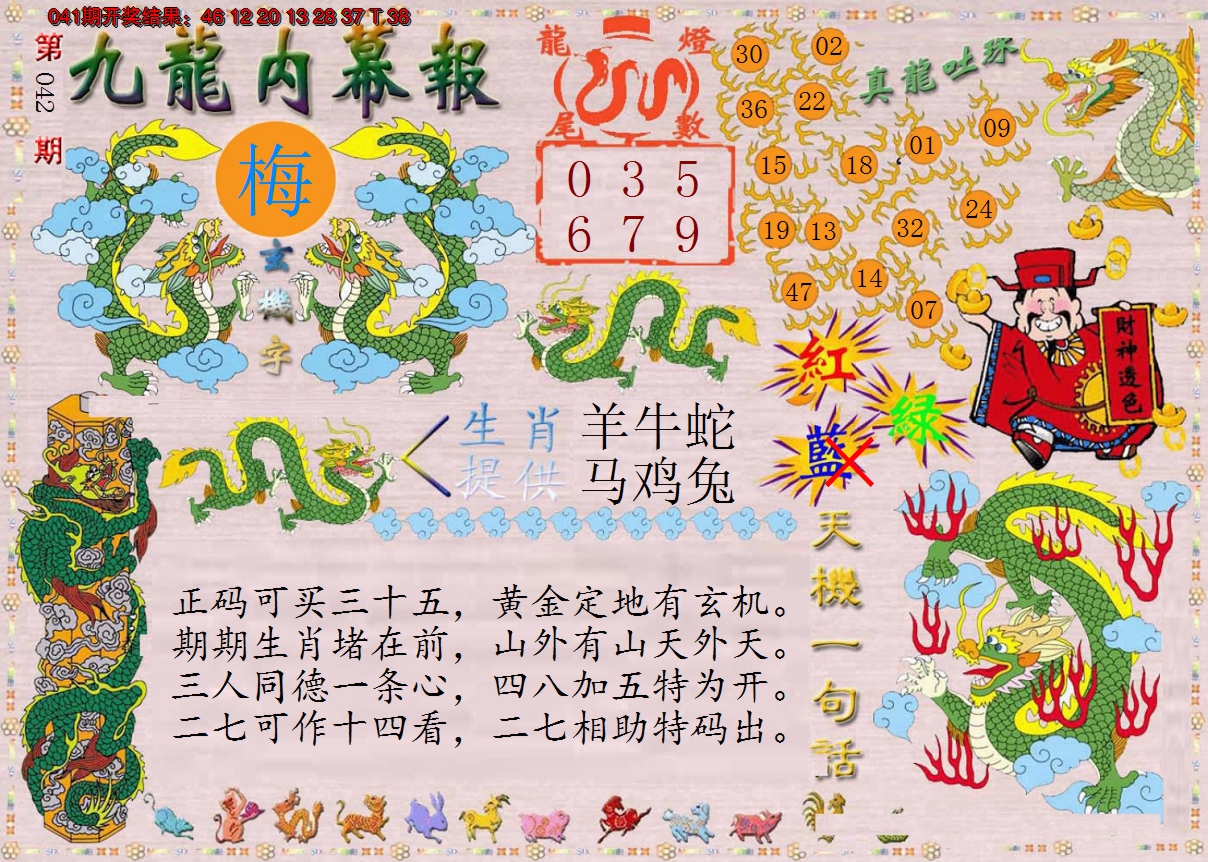 041期开奖结果：46 12 20 13 28 37 T 38
第042期
九龍内幕報
梅
玄機字
龍燈
尾數
0 3 5
6 7 9
真龍吐珠
30 02
36 22
01 09
15 18
24
19 13 32
14
47 07
財神透色
紅
綠
藍
生肖
提供
羊牛蛇
马鸡兔
天機一句话
正码可买三十五，黄金定地有玄机。
期期生肖堵在前，山外有山天外天。
三人同德一条心，四八加五特为开。
二七可作十四看，二七相助特码出。